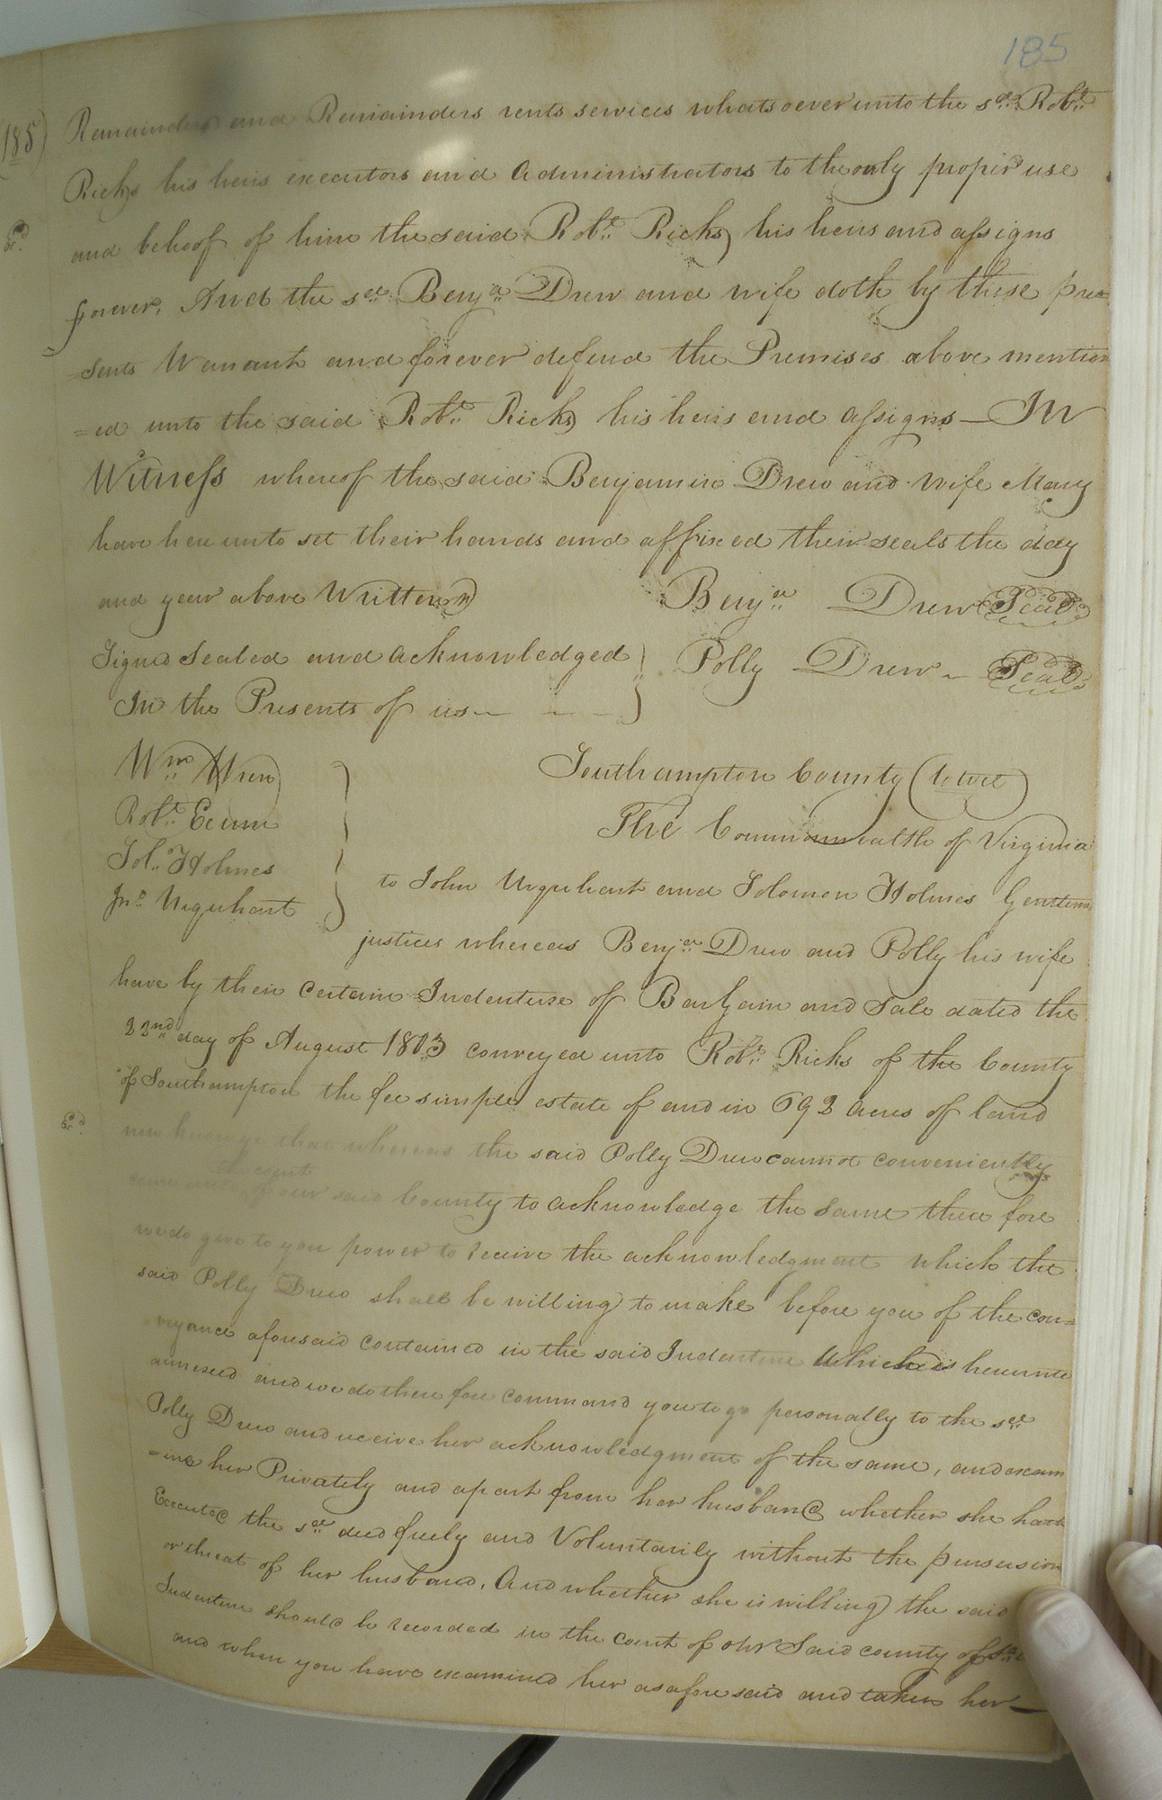 185
(185)
Remainders and Remainders rents services whatsoever unto the sd. Robt.
Ricks his heirs executors and administrators to the only proper use
and behoof of him the said Robt. Ricks his heirs and assigns
forever, And the sd. Benja. Drew and wife doth by these pre
=sents Warrant and forever defend the Premises above mention
=ed unto the said Robt. Ricks his heirs and assigns — In
Witness whereof the said Benjamin Drew and wife Mary
have hereunto set their hands and affixed their seals the day
and year above Written
Benja. Drew Seal
Signed Sealed and acknowledged
In the Presents of us
Polly Drew Seal
Wm. Wren
Robt. Ecum
Sol. Holmes
Jno. Urquhart
Southampton County (to wit)
The Commonwealth of Virginia
to John Urquhart and Solomon Holmes Gentlemn
justices whereas Benja. Drew and Polly his wife
have by their certain Indenture of Bargain and Sale dated the
22nd day of August 1803 conveyed unto Robt. Ricks of the County
of Southampton the fee simple estate of and in 692 acres of land
now know ye that whereas the said Polly Drew cannot conveniently
court
our said County to acknowledge the same there fore
we do give to you power to receive the acknowledgment which the
said Polly Drew shall be willing to make before you of the con=
veyance aforesaid contained in the said Indenture which is hereunto
annexed and we do there fore command you to go personally to the sd.
Polly Drew and receive her acknowledgment of the same, and exam
=ine her Privately and apart from her husband whether she hath
Executed the sd. deed freely and Voluntarily without the persusion
or threat of her husband. And whether she is willing the said
Indenture should be recorded in the court of our Said county of
and when you have examined her as afore said and taken her —